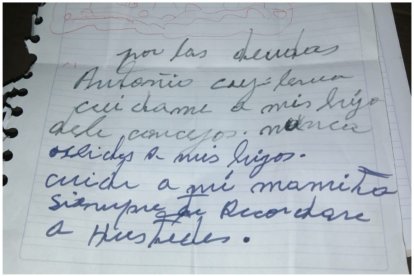 por las deudas
Antoñio
cuidame a mis hijo
dele concejos. nunca
olvides a mis hijos.
cuide a mi mamita
siempre Recordare
a Hustedes.